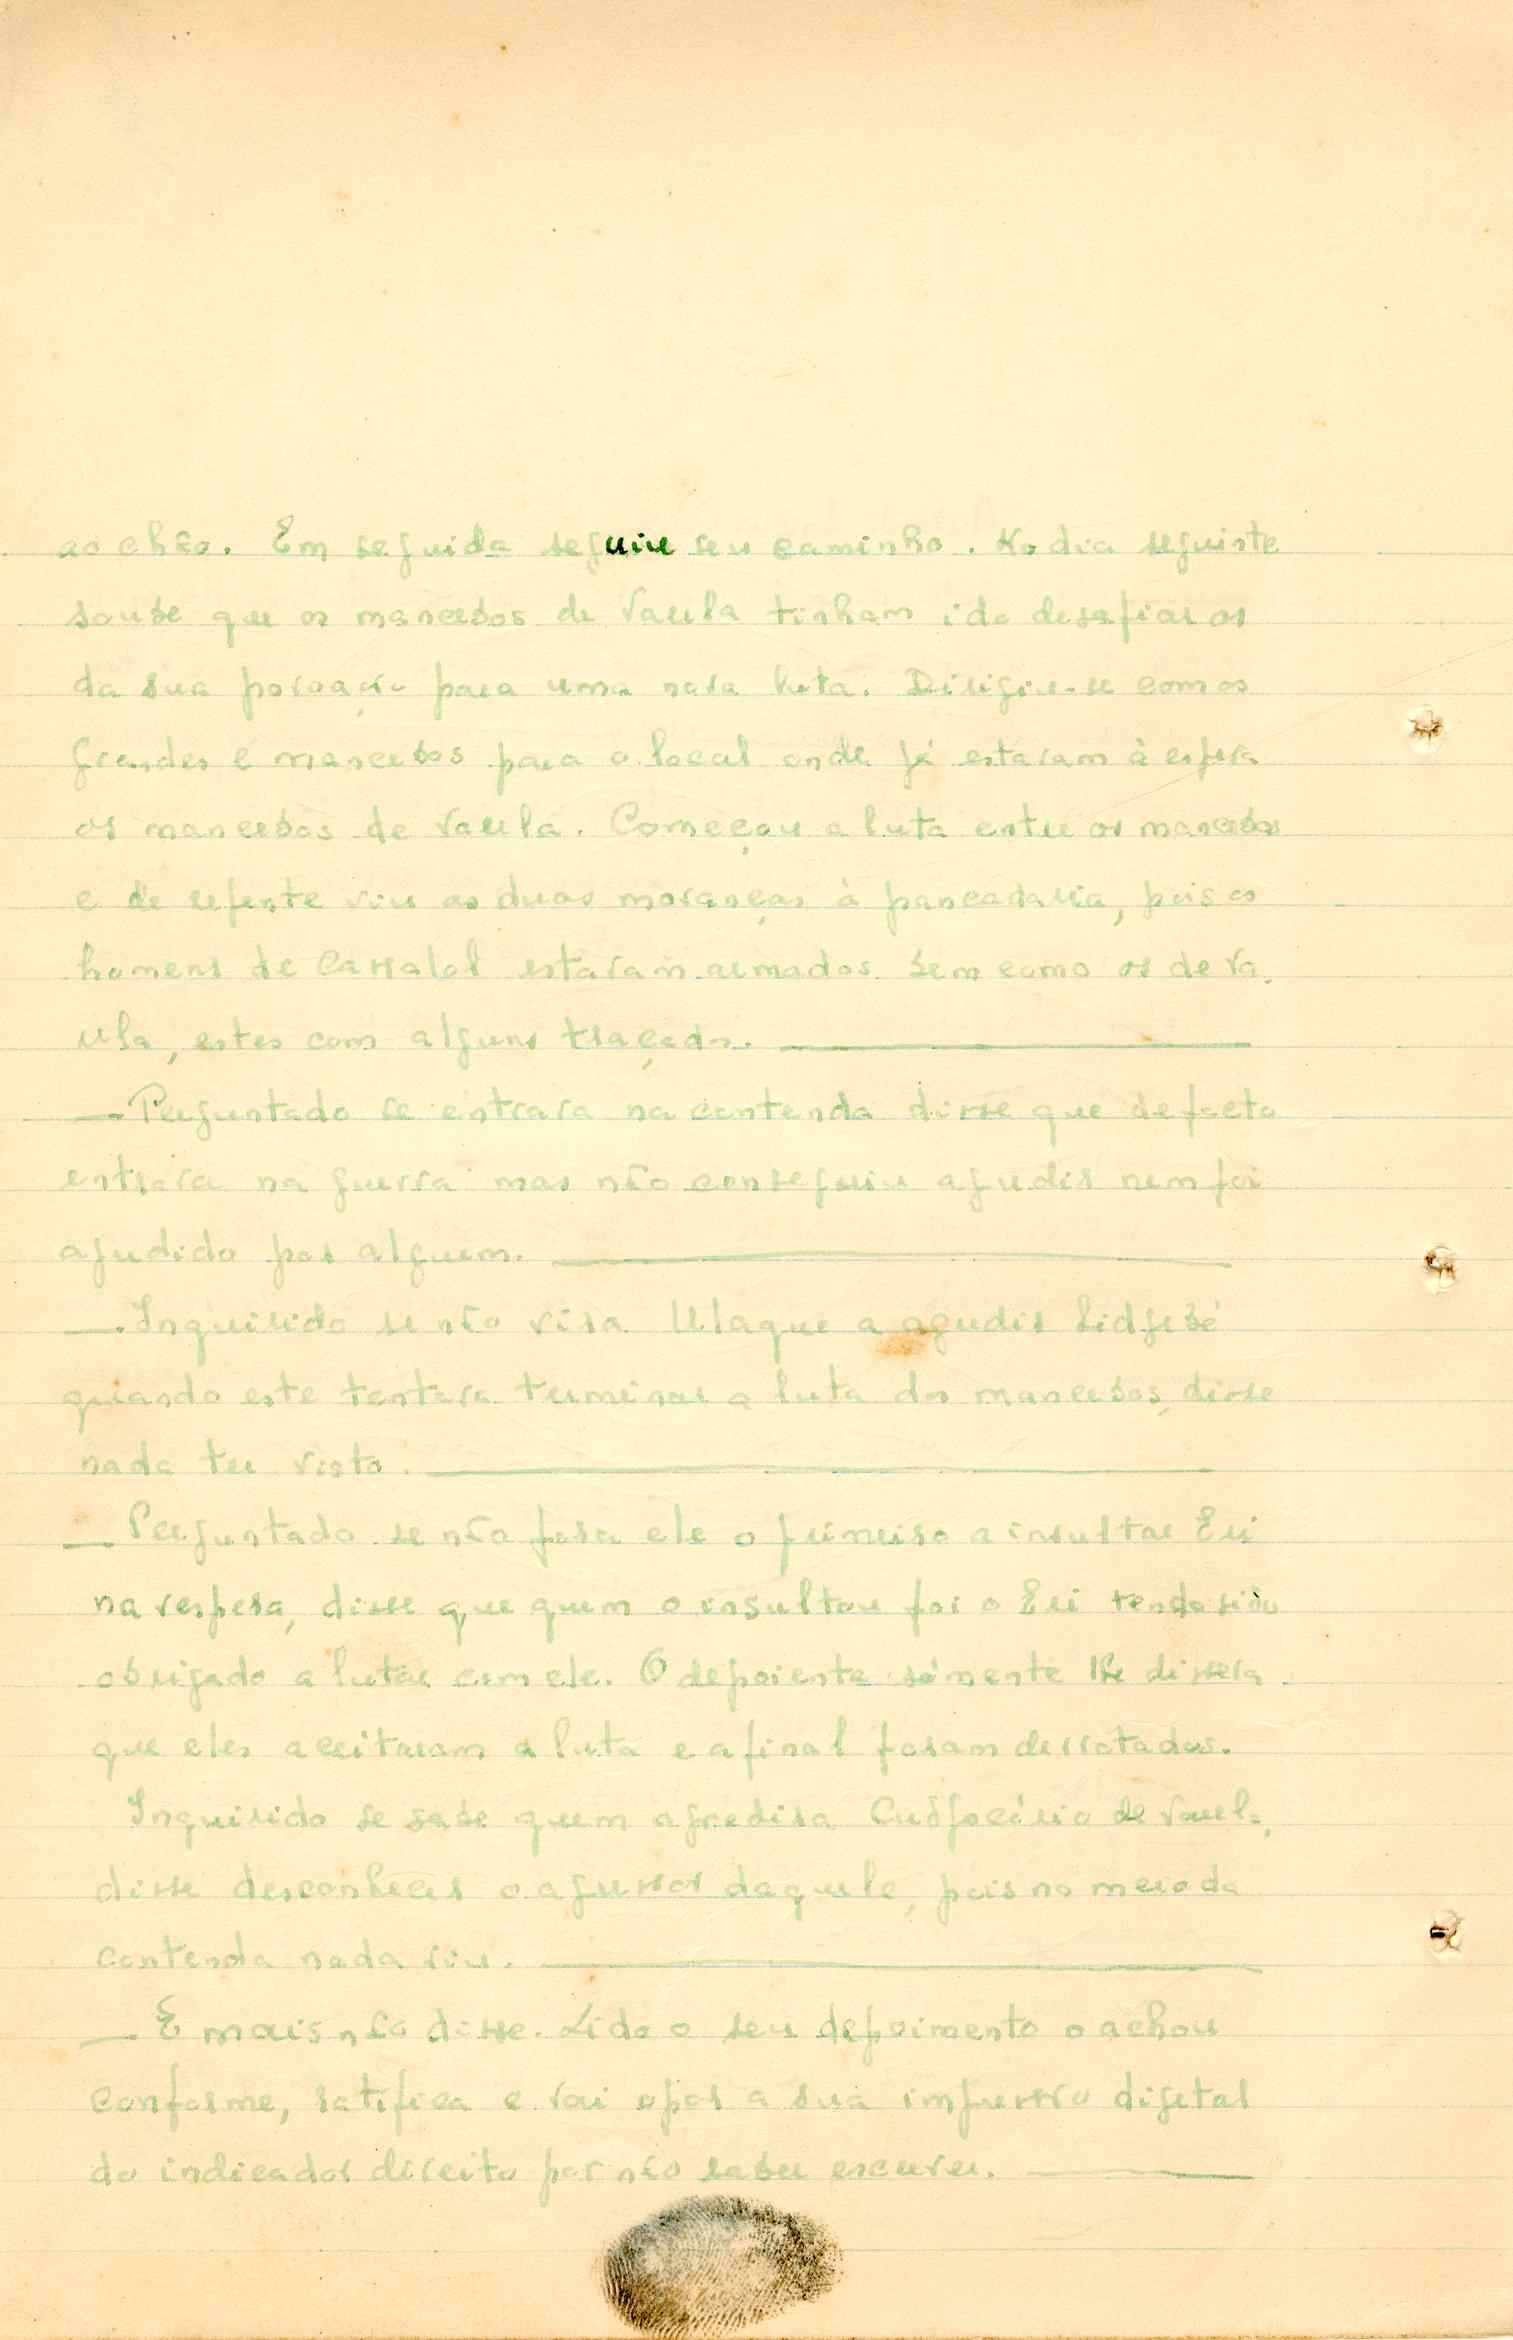 ao chão. Em seguida seguiu seu caminho. No dia seguinte
soube que os mancebos de Varela tinham ido desafiar os
da sua povoação para uma nova luta. Dirigiu-se com os
grandes e mancebos para o local onde já estavam à espera
os mancebos de Varela. Começou a luta entre os mancebos
e de repente viu as duas moranças à pancadaria, pois os
homens de Cassalol estavam armados bem como os de Va
rela, estes com alguns traçados.
— Perguntado se entrara na contenda disse que de facto
entrara na guerra mas não conseguiu agredir nem foi
agredido por alguem.
— Inquirido se não vira Ulaque a agredir Lidjebé
quando este tentara terminar a luta dos mancebos, disse
nada ter visto.
— Perguntado se não fora ele o primeiro a insultar Eri
na vespera, disse que quem o insultou foi o Eri tendo sido
obrigado a lutar com ele. O depoente sómente lhe dissera
que eles aceitaram a luta e afinal foram derrotados.
Inquirido se sabe quem agredira de Varela,
disse desconhecer o agressor daquele, pois no meio da
contenda nada viu.
— E mais não disse. Lido o seu depoimento o achou
conforme, ratifica e vai apor a sua impressão digital
do indicador direito por não saber escrever.